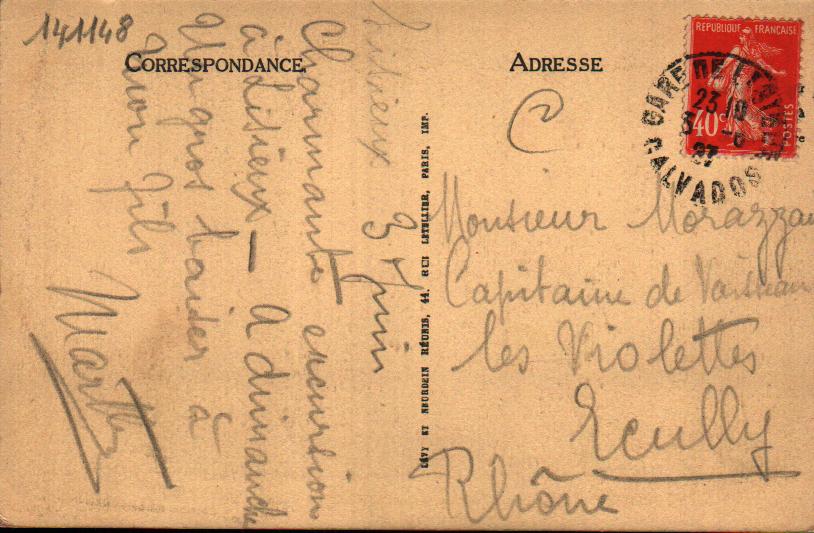 141148
CORRESPONDANCE
Lisieux 3 Juin
Charmante excursion
à Lisieux — A dimanche
Un gros baiser à
mon fils
Marthe
LÉVY ET NEURDEIN RÉUNIS, 44, RUE LETELLIER, PARIS, IMP.
ADRESSE
REPUBLIQUE FRANÇAISE
40c
POSTES
GARE DE
23 10
3 -6
27
CALVADOS
Monsieur Morazzan
Capitaine de Vaisseau
les Violettes
Ecully
Rhône